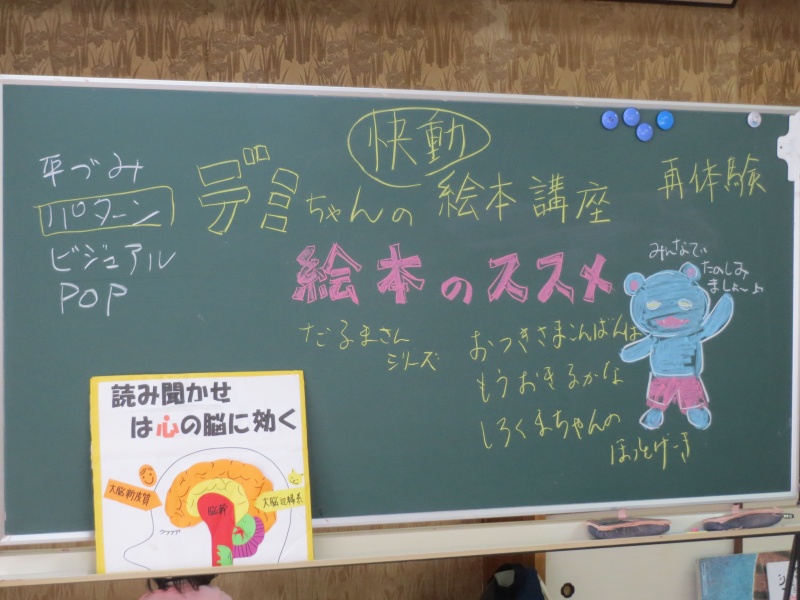 平づみ
パターン
ビジュアル
POP
快動
デミちゃんの絵本講座
再体験
絵本のススメ
みんなで
たのしみ
ましょ〜♪
だるまさん
シリーズ
おつきさまこんばんは
もうおきるかな
しろくまちゃんの
ほっとけーき
読み聞かせ
は心の脳に効く
大脳新皮質
大脳辺縁系
脳幹